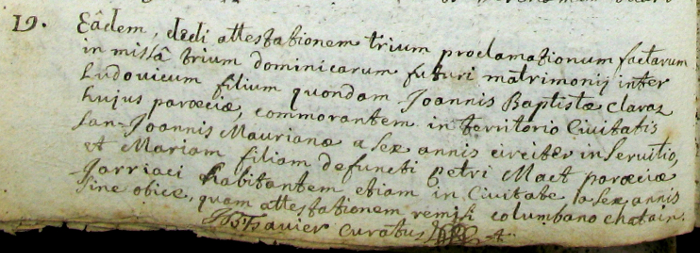 19. Eâdem, dedi attestationem trium proclamationum factarum
in missâ trium dominicarum futuri matrimonij inter
Ludovicum filium quondam Joannis Baptistæ Claraz
hujus parœciæ, commorantem in territorio Civitatis
San-Joannis Maurianæ a sex annis circiter in servitio,
et Mariam filiam defuncti Petri Maet parœciæ
Jarriaci habitantem etiam in Civitate a sex annis
sine obice, quam attestationem remisi columbano chataing
Favier Curatus